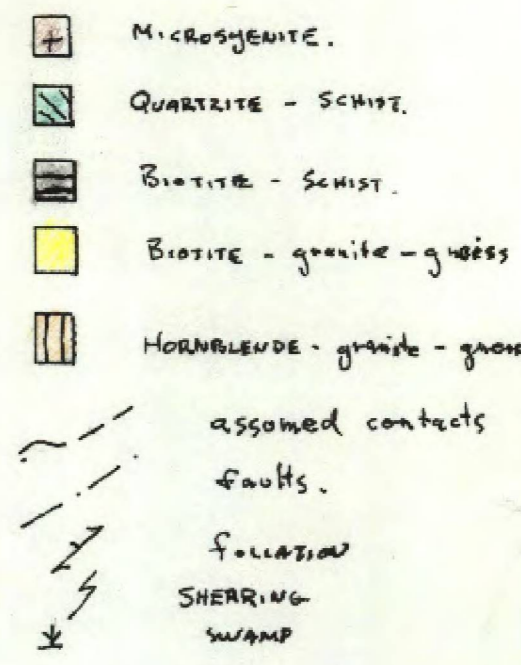 MICROSYENITE.
QUARTZITE - SCHIST.
BIOTITE - SCHIST.
BIOTITE - granite - gneiss
HORNBLENDE - granite - gneis
assomed contacts
faults.
FOLLATION
SHEARING
SWAMP